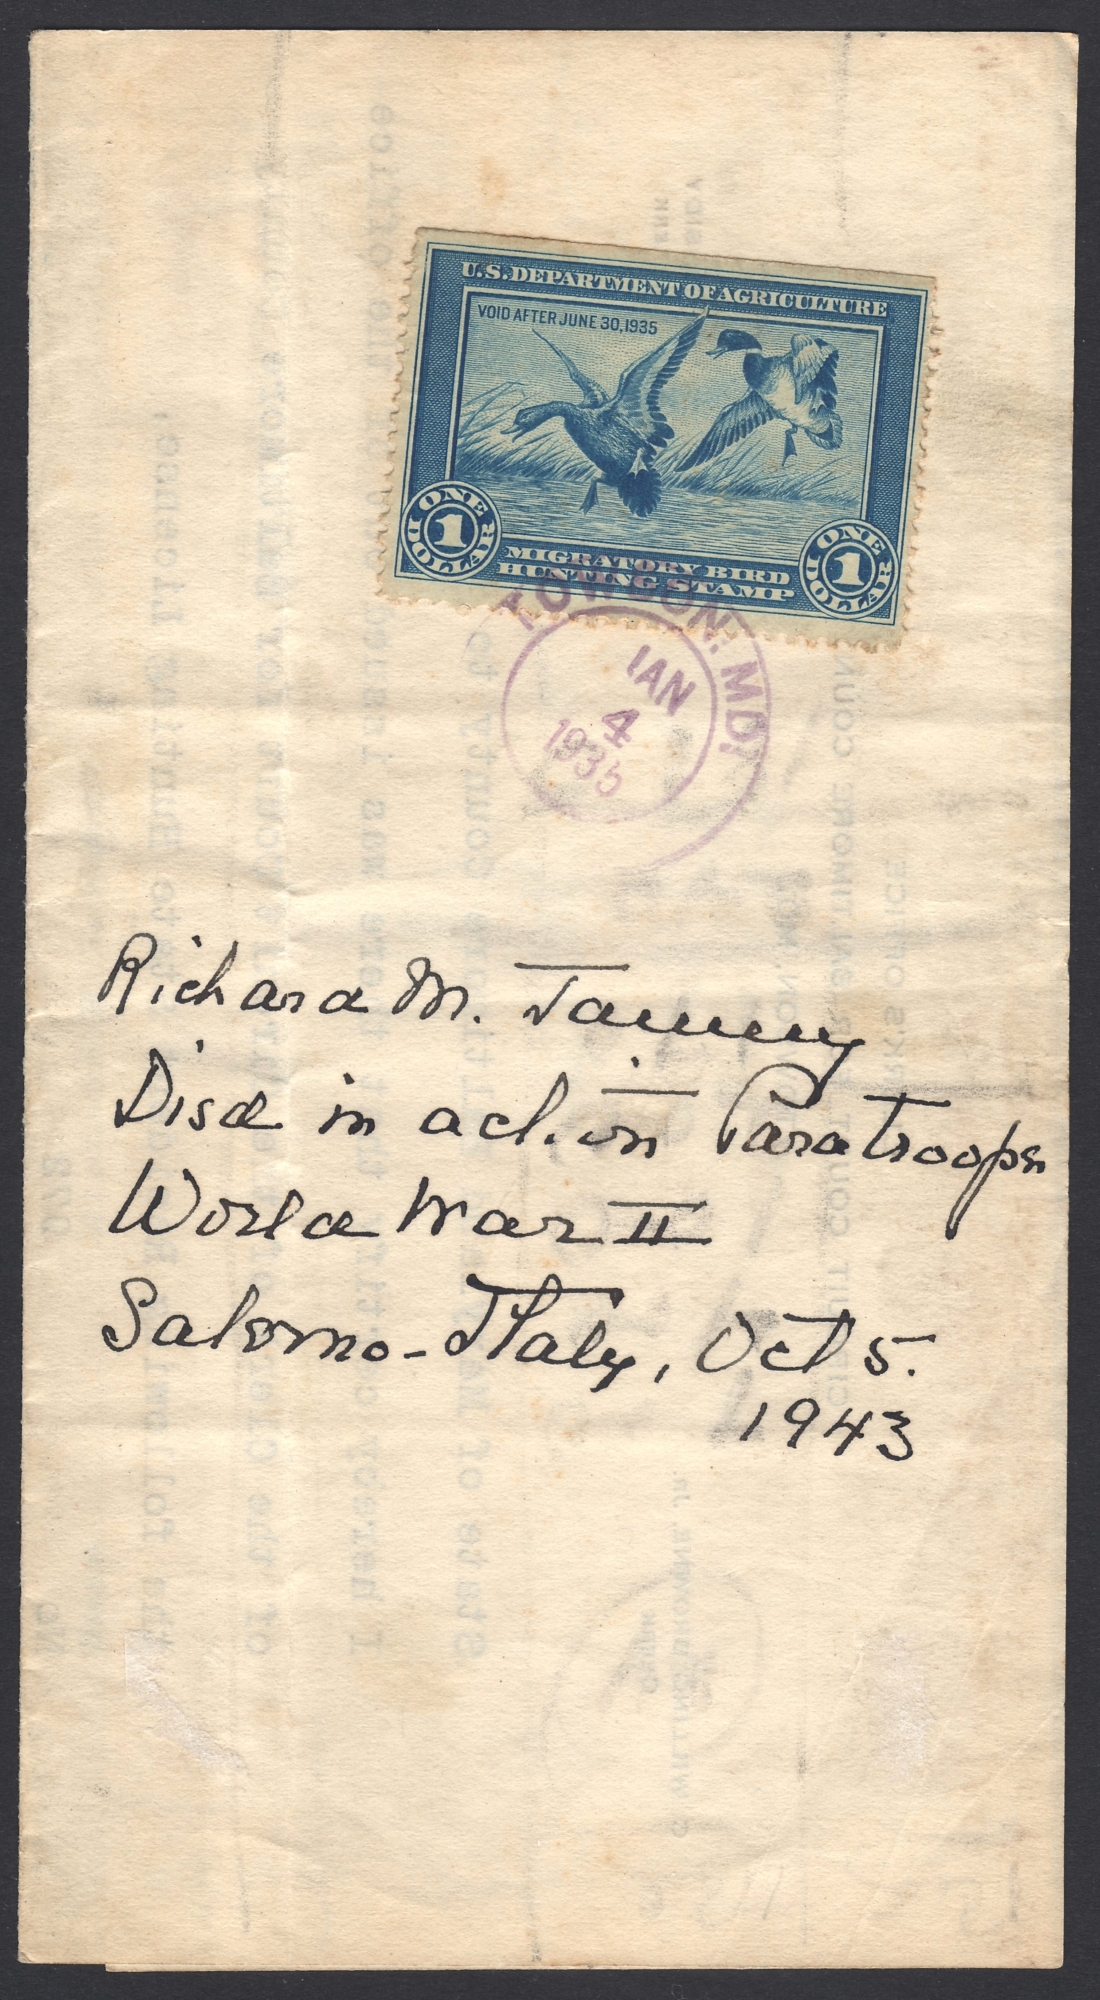 U.S. DEPARTMENT OF AGRICULTURE
VOID AFTER JUNE 30, 1935
ONE 1 DOLLAR
ONE 1 DOLLAR
MIGRATORY BIRD
HUNTING STAMP
TOWSON, MD.
JAN
4
1935
Richard M.
Died in action Paratrooper
World War II
Salerno - Italy, Oct 5.
1943